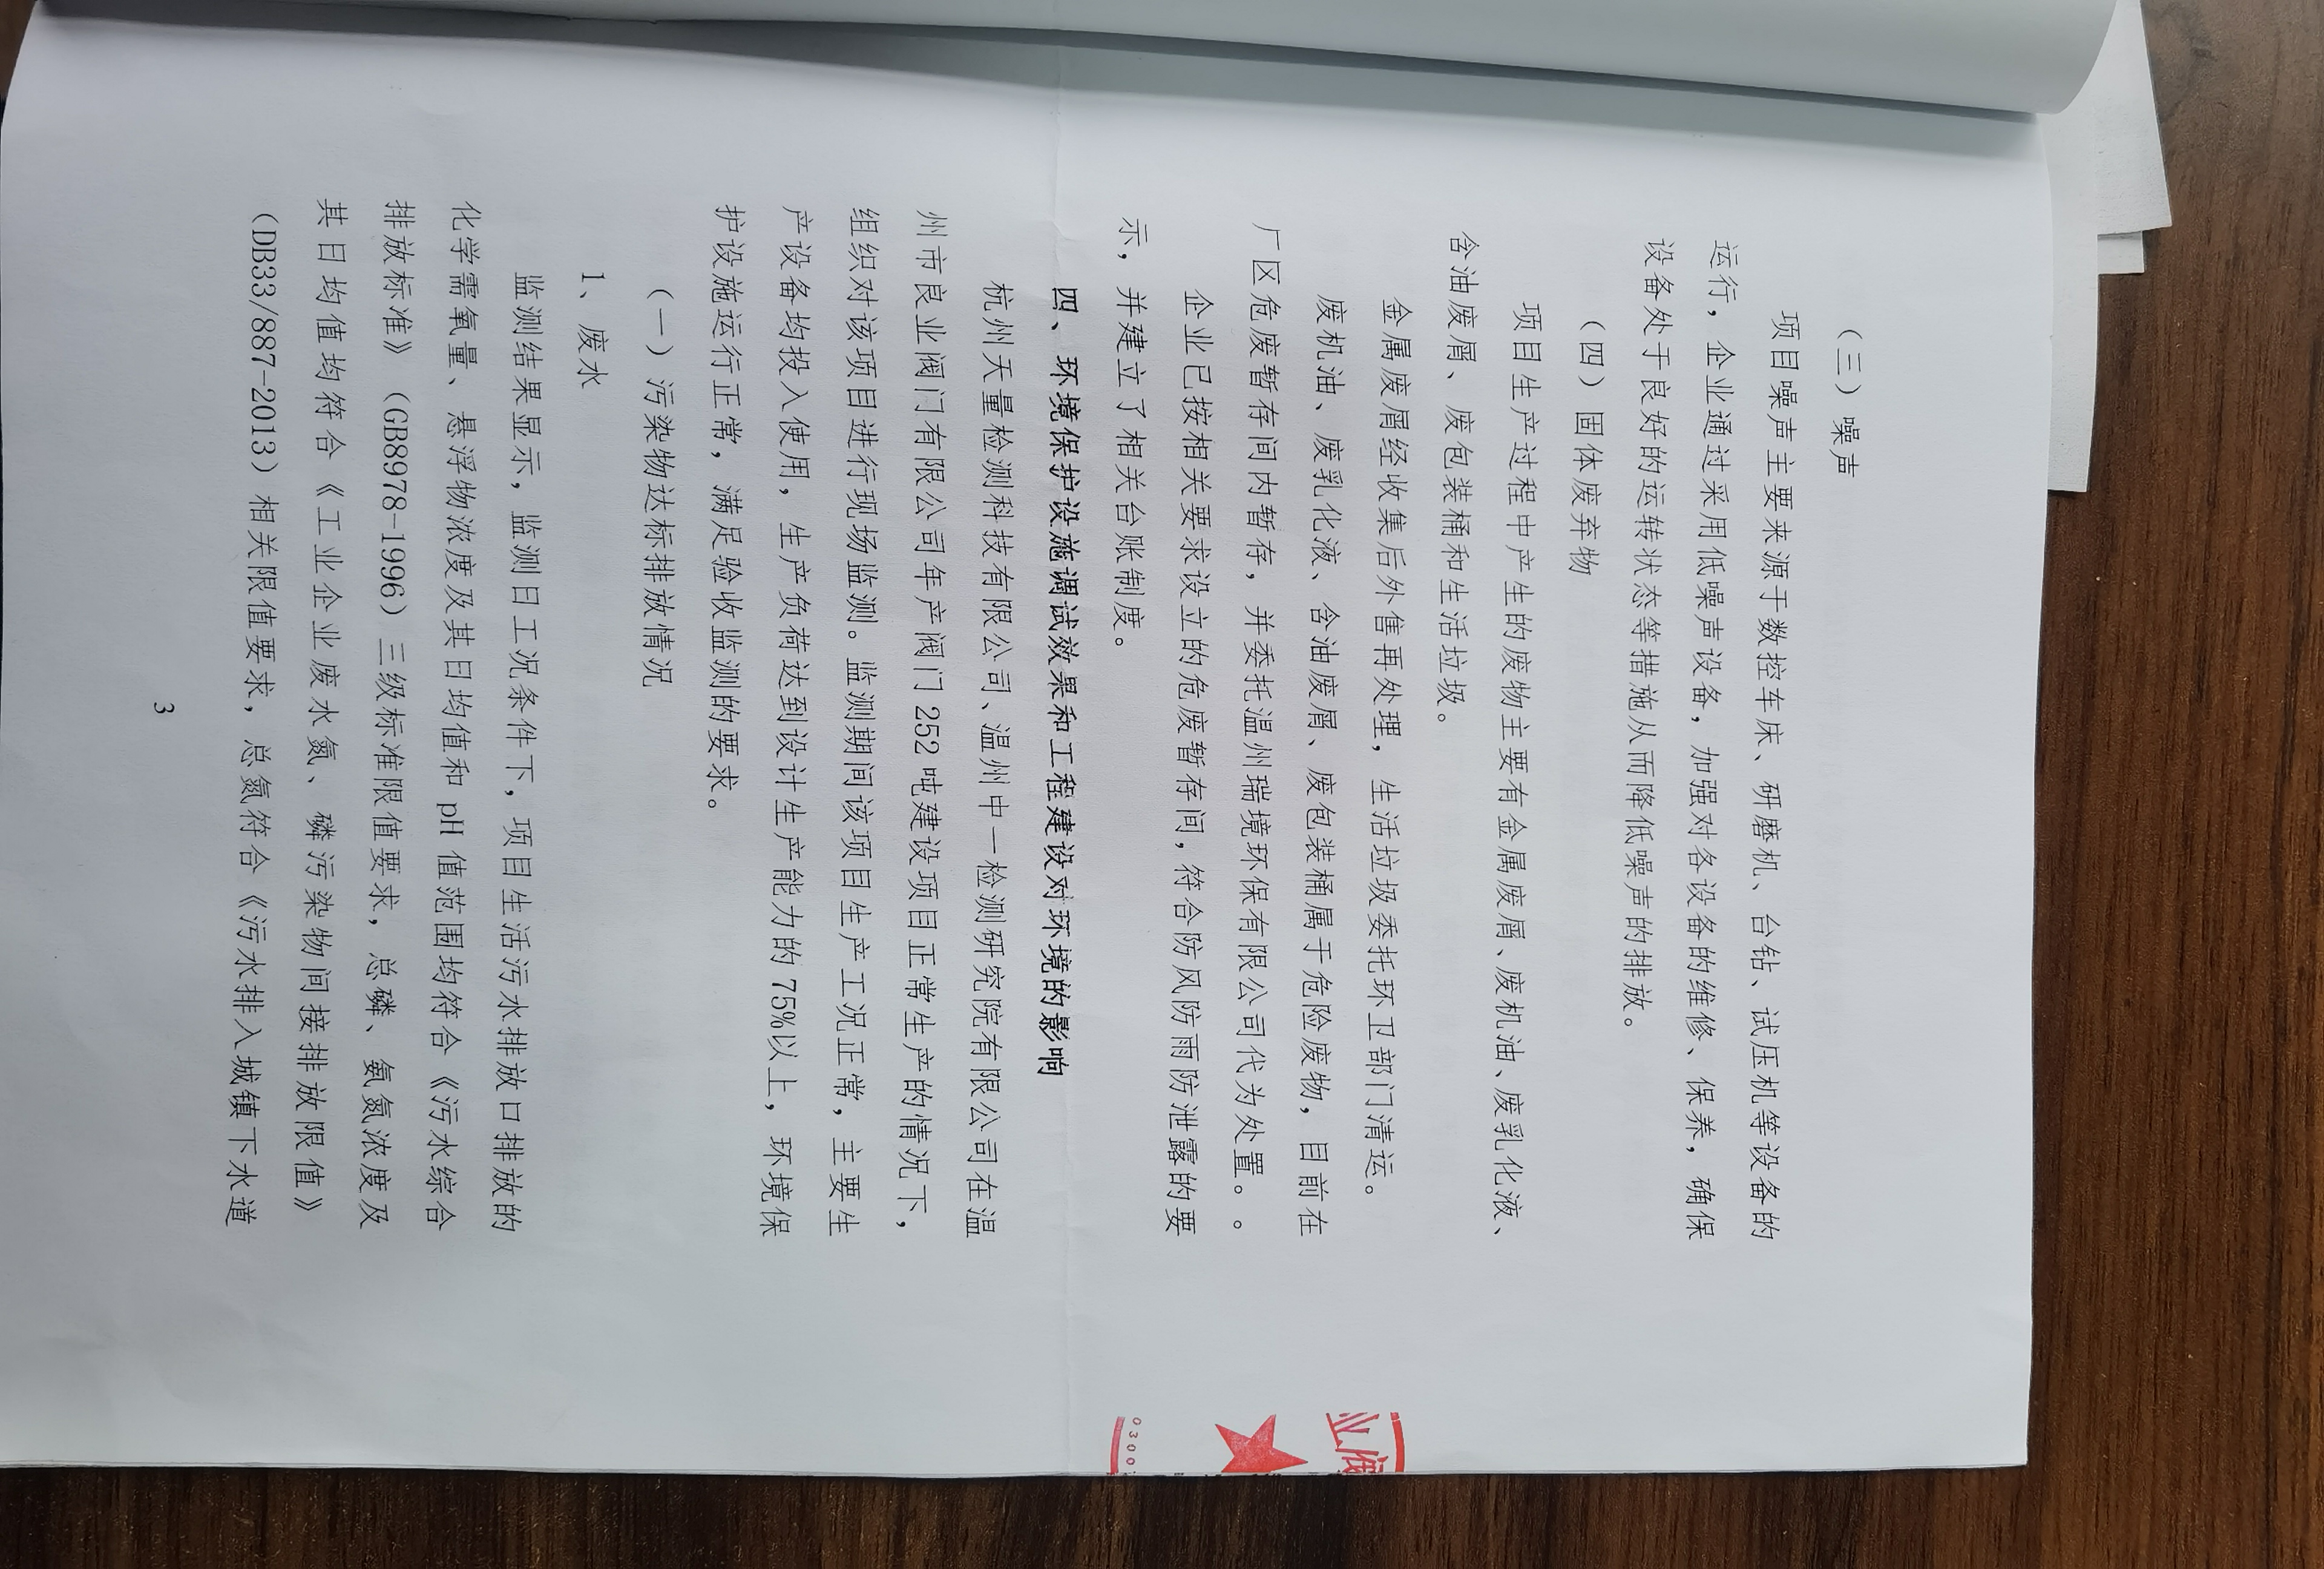 （三）噪声
项目噪声主要来源于数控车床、研磨机、台钻、试压机等设备的
运行，企业通过采用低噪声设备，加强对各设备的维修、保养，确保
设备处于良好的运转状态等措施从而降低噪声的排放。
（四）固体废弃物
项目生产过程中产生的废物主要有金属废屑、废机油、废乳化液、
含油废屑、废包装桶和生活垃圾。
金属废屑经收集后外售再处理，生活垃圾委托环卫部门清运。
废机油、废乳化液、含油废屑、废包装桶属于危险废物，目前在
厂区危废暂存间内暂存，并委托温州瑞境环保有限公司代为处置。。
企业已按相关要求设立的危废暂存间，符合防风防雨防泄露的要
示，并建立了相关台账制度。
四、环境保护设施调试效果和工程建设对环境的影响
杭州天量检测科技有限公司、温州中一检测研究院有限公司在温
州市良业阀门有限公司年产阀门 252 吨建设项目正常生产的情况下，
组织对该项目进行现场监测。监测期间该项目生产工况正常，主要生
产设备均投入使用，生产负荷达到设计生产能力的 75%以上，环境保
护设施运行正常，满足验收监测的要求。
（一）污染物达标排放情况
1、废水
监测结果显示，监测日工况条件下，项目生活污水排放口排放的
化学需氧量、悬浮物浓度及其日均值和 pH 值范围均符合《污水综合
排放标准》（GB8978-1996）三级标准限值要求，总磷、氨氮浓度及
其日均值均符合《工业企业废水氮、磷污染物间接排放限值》
（DB33/887-2013）相关限值要求，总氮符合《污水排入城镇下水道
3
业阀
0300